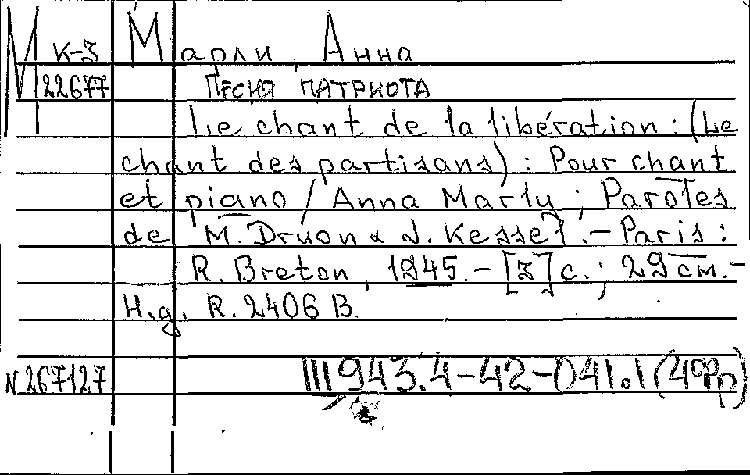 М К-3 Марли, Анна
22677 Песня патриота
Le chant de la libération : (Le
chant des partisans) : Pour chant
et piano / Anna Marly ; Paroles
de M. Druon & J. Kessel. – Paris :
R. Breton, 1945. – [3] с. ; 29 см. –
Н.д. R. 2406 B.
N 267127 Ш 943.4-42-041.1(4Фр)